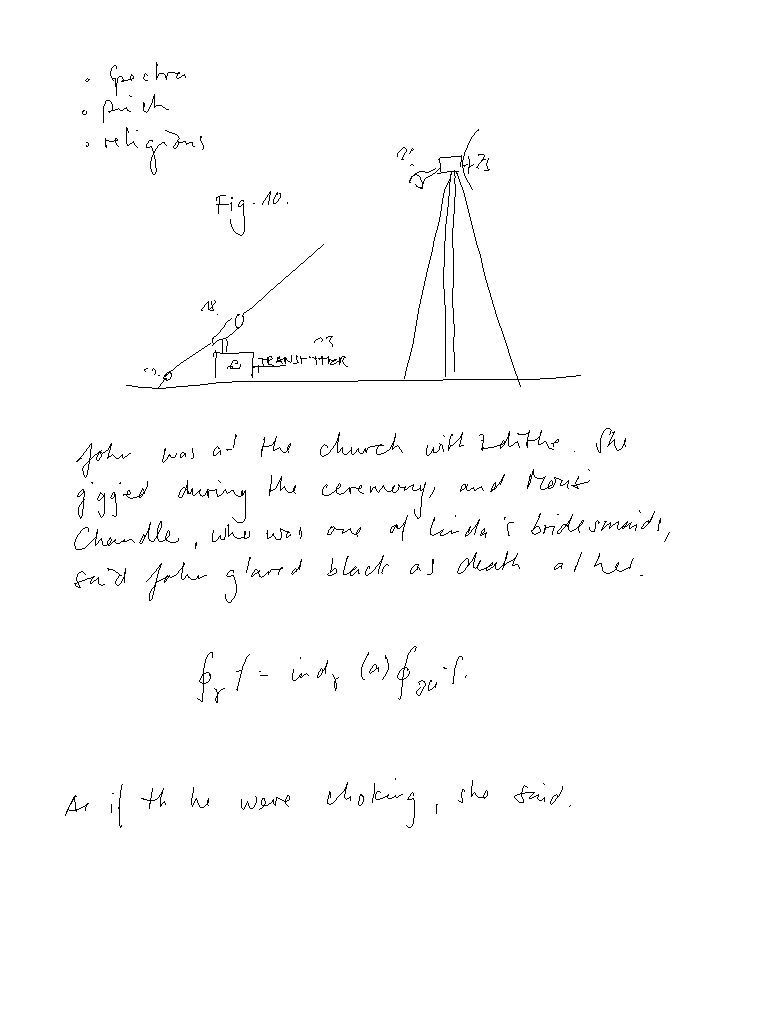 • Spectra
• pinch
• religions
Fig. 10.
18.
13
TRANSMITTER
John was at the church with Edithe. She
gigged during the ceremony, and
Chandle, who was one of Linda's bridesmaids,
said John glared black as death at her.
∮γ f = indγ (a) ∮∂u f.
As if th he were choking, she said.